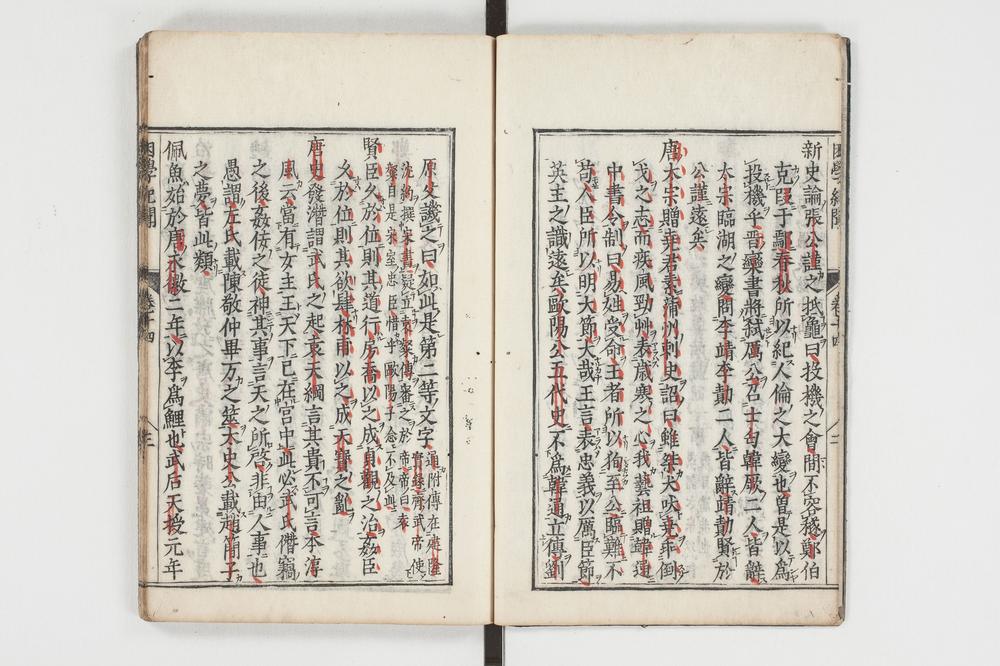 新史論張公謹之抵龜曰投機之會間不容穟鄭伯
克段于鄢春秋所以紀人倫之大變也曽是以爲
投機乎晋欒書將弑厲公召士匄韓厥二人皆辭
太宗臨湖之變問李靖李勣二人皆辭靖勣賢於
公謹遠矣
唐太宗贈堯君素蒲州刺史詔曰雖桀犬吠堯乖倒
戈之志而疾風勁艸表歲寒之心我藝祖贈韓通
中書令制曰易姓受命王者所以徇至公臨難不
苟人臣所以明大節大哉王言表忠義以厲臣節
英主之識遠矣歐陽公五代史不爲韓通立傳劉
原父譏之曰如此是第二等文字
通附傳在建隆
實録齊武帝使
沈約撰宋書疑立袁粲傳審之於帝帝曰袁
粲自是宋室忠臣惜乎歐陽子念不及此
賢臣久於位則其道行房喬以之成貞觀之治姦臣
久於位則其欲肆林甫以之成天寶之亂
唐史發潛謂武氏之起袁天綱言其貴不可言李淳
風云當有女主王天下已在宫中此必武氏僭竊
之後姦佞之徒神其事言天之所啓非由人事也
愚謂左氏載陳敬仲畢万之筮太史公載趙簡子
之夢皆此類
佩魚始於唐永徽二年以李爲鯉也武后天授元年
困學紀聞
卷十四
三